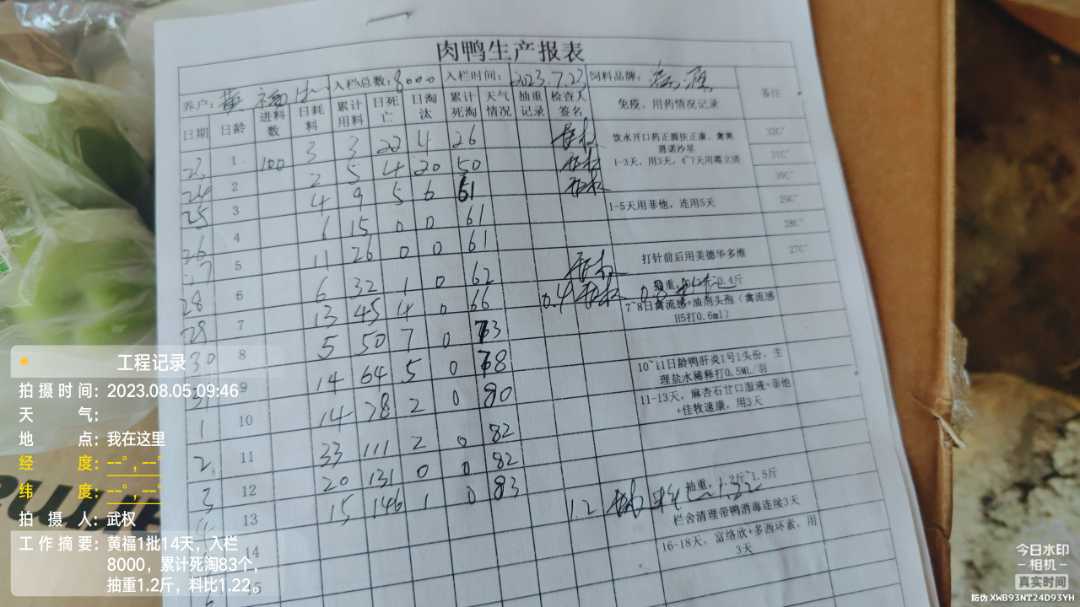 肉鸭生产报表
养户: 黄福 入栏总数: 8000 入栏时间: 2023.7.23 饲料品牌:
日期 日龄 进料数 日耗料 累计用料 日死亡 日淘汰 累计死淘 天气情况 抽重记录 检查人签名 免疫、用药情况记录 备注
23 1 100 3 3 22 4 26 饮水开口药正颗扶正康,禽美 恩诺沙星 1-3天,用3天, 33C°
24 2 2 5 4 20 50 31C°
25 3 4 9 5 6 61 1-5天用菲他,连用5天
26 4 6 15 0 0 61
27 5 11 26 0 0 61 打针前后用美德华多维 27C°
28 6 6 32 1 0 62
29 7 13 45 4 0 66 0.4 7~8日禽流感+油剂头孢(禽流感H5打0.6ml)
30 8 5 50 7 0 73
9 14 64 5 0 78 10~11日龄鸭肝炎1号1头份,生理盐水稀释打0.5ML/羽
1 10 14 78 2 0 80 11-13天,麻杏石甘口服液+菲他+佳牧速康,用3天
2 11 33 111 2 0 82
3 12 20 131 0 0 82
4 13 15 146 1 0 83 1.2 抽重:1.2斤~1.5斤
栏舍清理带鸭消毒连续3天
14 16-18天,富络欣+多西环素,用3天
工程记录
拍摄时间: 2023.08.05 09:46
天气:
地点: 我在这里
经度: --°, --°
纬度: --°, --°
拍摄人: 武权
工作摘要: 黄福1批14天,入栏
8000,累计死淘83个,
抽重1.2斤,料比1.22。
今日水印
-相机-
真实时间
防伪 XWB93NT24D93YH